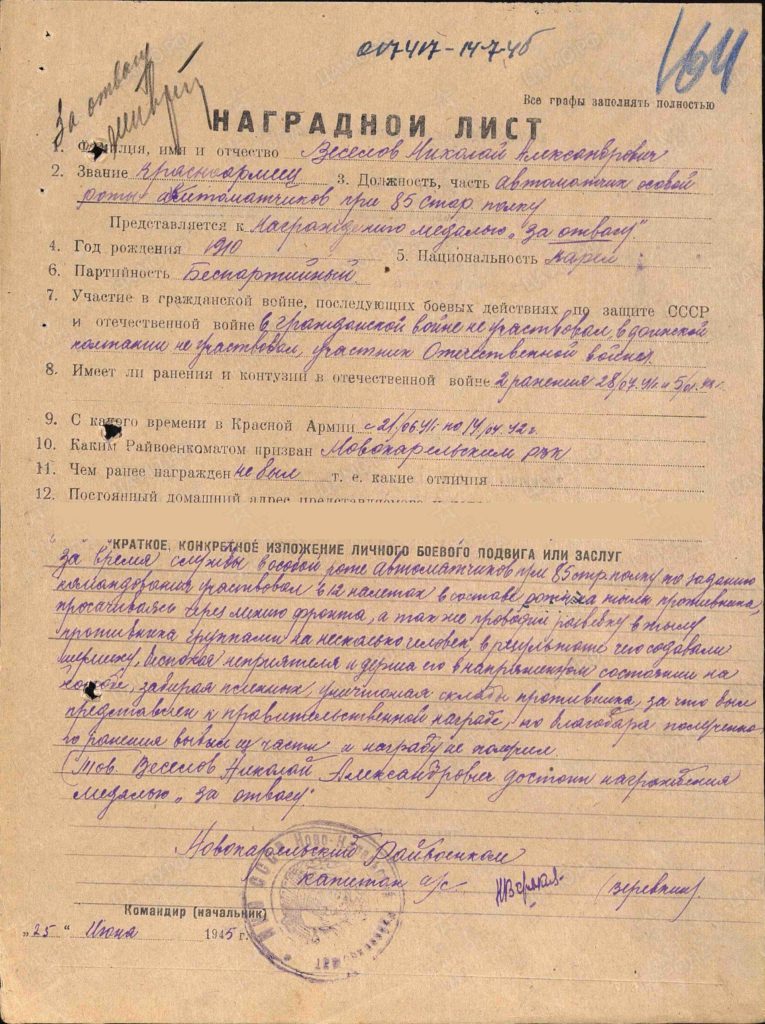 164
Все графы заполнять полностью
За отвагу
НАГРАДНОЙ ЛИСТ
1. Фамилия, имя и отчество Веселов Николай Александрович
2. Звание Красноармеец 3. Должность, часть автоматчик особой
роты автоматчиков при 85 стр. полку
Представляется к Награждению медалью „За отвагу"
4. Год рождения 1910 5. Национальность Карел
6. Партийность Беспартийный
7. Участие в гражданской войне, последующих боевых действиях по защите СССР
и отечественной войне в гражданской войне не участвовал, в финской
компании не участвовал, участник Отечественной войны.
8. Имеет ли ранения и контузии в отечественной войне 2 ранения
9. С какого времени в Красной Армии с 21/06.41 по 14/04.42 г.
10. Каким Райвоенкоматом призван Новокарельским рвк
11. Чем ранее награжден не был т. е. какие отличия
12. Постоянный домашний адрес представляемого к
КРАТКОЕ, КОНКРЕТНОЕ ИЗЛОЖЕНИЕ ЛИЧНОГО БОЕВОГО ПОДВИГА ИЛИ ЗАСЛУГ
За время службы в особой роте автоматчиков при 85 стр. полку по заданию
командования участвовал в 12 налетах в составе тылы противника,
просачиваясь через линию фронта, а так же проводил разведку в тылу
противника группами на несколько человек, в результате чего создавали
беспокоя неприятеля и держа его в напряженном состоянии на
забирая пленных, уничтожая склады противника, за что был
представлен к правительственной награде, но благодаря полученно-
го ранения выбыл из части и награду не получил.
Тов. Веселов Николай Александрович достоин награждения
медалью „За отвагу".
Новокарельский Райвоенком
капитан а/с (Веревкин).
Командир (начальник)
„25" Июня 1945 г.